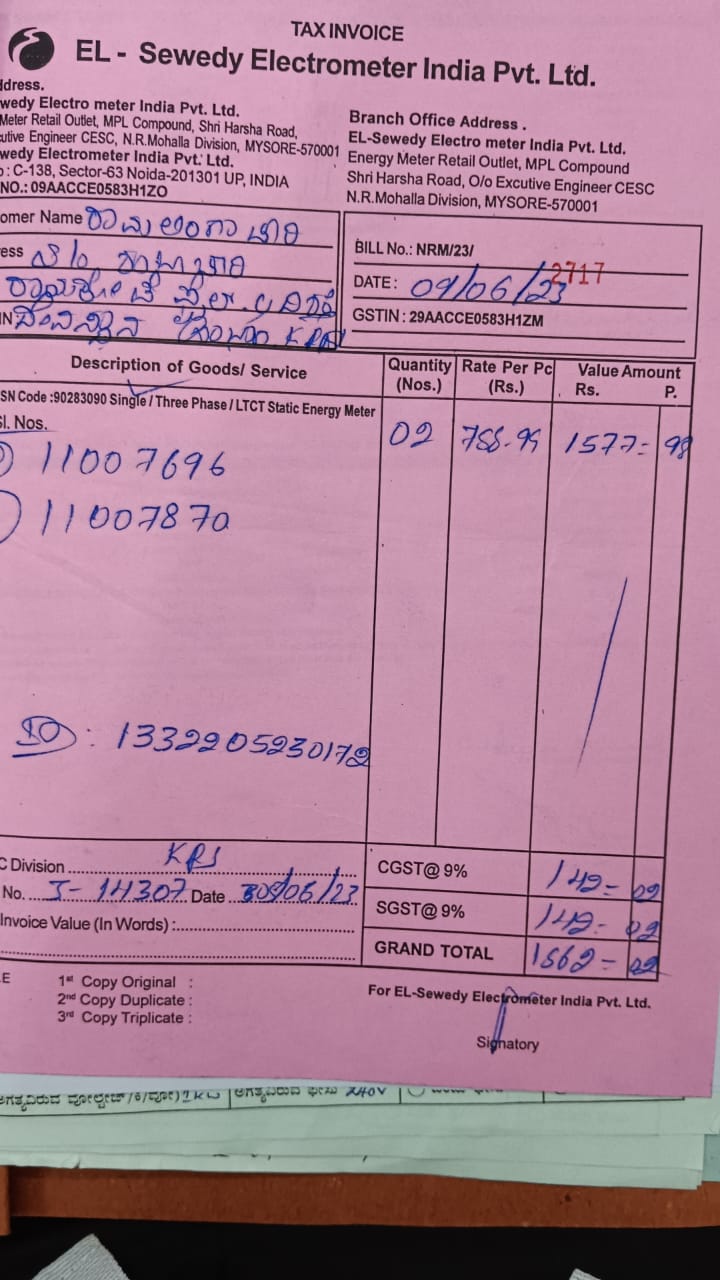 TAX INVOICE
EL - Sewedy Electrometer India Pvt. Ltd.
ddress.
wedy Electro meter India Pvt. Ltd.
Meter Retail Outlet, MPL Compound, Shri Harsha Road,
cutive Engineer CESC, N.R.Mohalla Division, MYSORE-570001
wedy Electrometer India Pvt. Ltd.
: C-138, Sector-63 Noida-201301 UP, INDIA
NO.: 09AACCE0583H1ZO
Branch Office Address .
EL-Sewedy Electro meter India Pvt. Ltd.
Energy Meter Retail Outlet, MPL Compound
Shri Harsha Road, O/o Excutive Engineer CESC
N.R.Mohalla Division, MYSORE-570001
omer Name
ess
IN KRS
BILL No.: NRM/23/ 2717
DATE : 09/06/23
GSTIN : 29AACCE0583H1ZM
Description of Goods/ Service Quantity (Nos.) Rate Per Pc (Rs.) Value Amount Rs. P.
SN Code :90283090 Single / Three Phase / LTCT Static Energy Meter
Sl. Nos.
02 788.99 1577= 98
11007696
11007870
: 1332205230172
C Division KRS
No. J- 14307 Date 09/06/23
Invoice Value (In Words) :
CGST@ 9% 142= 02
SGST@ 9% 142= 02
GRAND TOTAL 1862= 02
E
1st Copy Original :
2nd Copy Duplicate :
3rd Copy Triplicate :
For EL-Sewedy Electrometer India Pvt. Ltd.
Signatory